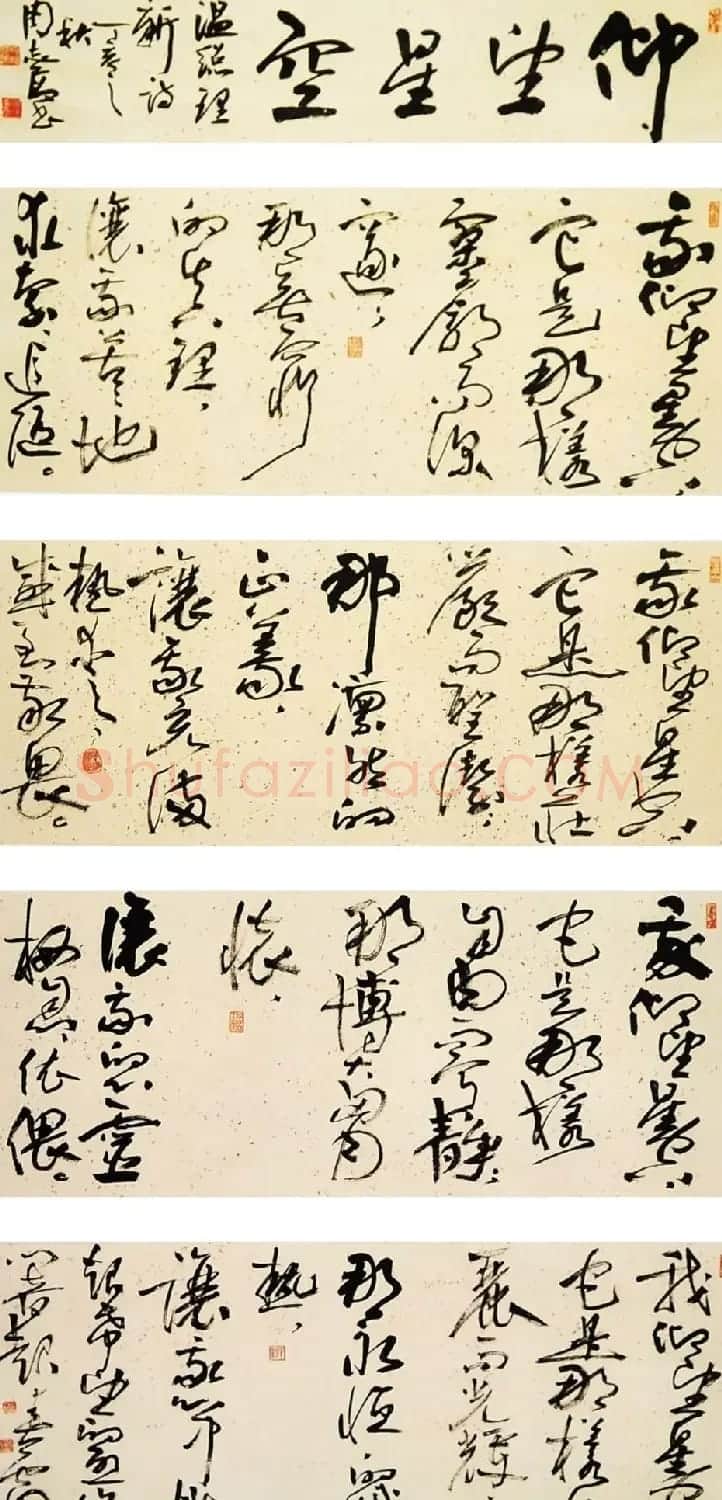 仰望星空
温總理
新詩
丁亥之
秋
周志高書
我仰望星空,
它是那樣
寥廓而深
邃,
那無窮
的真理,
讓我苦苦地
求索、追隨。
我仰望星空,
它是那樣莊
嚴而聖潔,
那凜然的
正義,
讓我充滿
熱愛、
感到敬畏。
我仰望星空,
它是那樣
自由而寧靜,
那博大的胸
懷,
讓我的心靈
栖息、依偎。
我仰望星
它是那樣
麗而光輝,
那永恒的
熱,
讓我心中
起希望的烈焰
響起春雷
Shufaziliao.COM